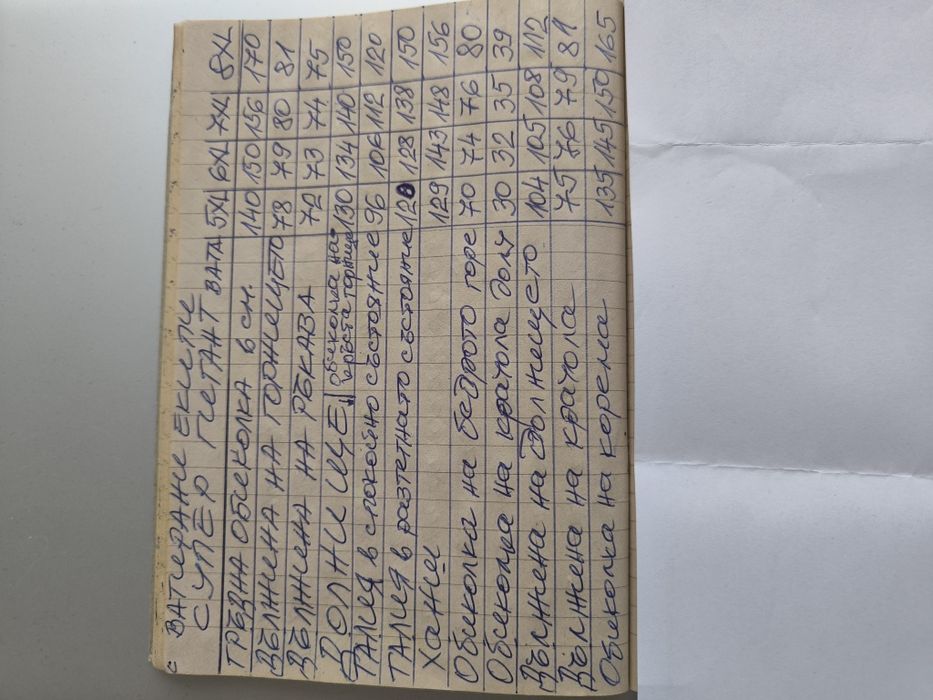 С ВАТИРАНИ ЕКИПИ
СУПЕР ГИГАНТ ВАТА 5XL 6XL 7XL 8XL
ГРЪДНА ОБИКОЛКА в см. 140 150 156 170
ДЪЛЖИНА НА ГОРНИЩЕТО 78 79 80 81
ДЪЛЖИНА НА РЪКАВА 72 73 74 75
ДОЛНИЩЕ || обиколка на ханръста горнище 130 134 140 150
ТАЛИЯ в спокойно състояние 96 106 112 120
ТАЛИЯ в разтегнато състояние 120 128 138 150
Ханш 129 143 148 156
Обиколка на бедрото горе 70 74 76 80
Обиколка на крачола долу 30 32 35 39
Дължина на Долнището 104 105 108 112
Дължина на крачола 75 76 79 81
Обиколка на корема 135 145 150 165